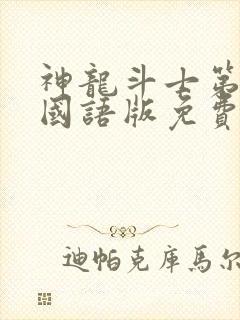 神龍斗士第
國語版免費
迪帕克庫馬尔